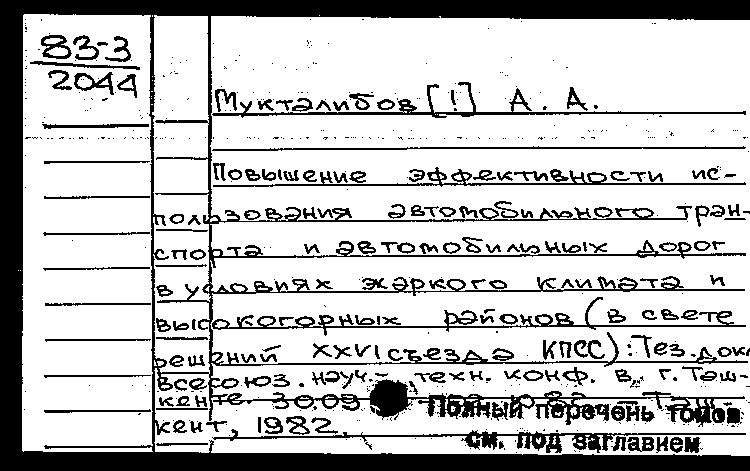 83-3
2044
Мукталибов [!] А. А.
Повышение эффективности ис-
пользования автомобильного тран-
спорта и автомобильных дорог
в условиях жаркого климата и
высокогорных районов (в свете
решений XXVI съезда КПСС): Тез. докл
Всесоюз. науч.-техн. конф. в г. Таш-
кенте. 30.09 10.82. – Таш-
кент, 1982.
Полный перечень томов
см. под заглавием